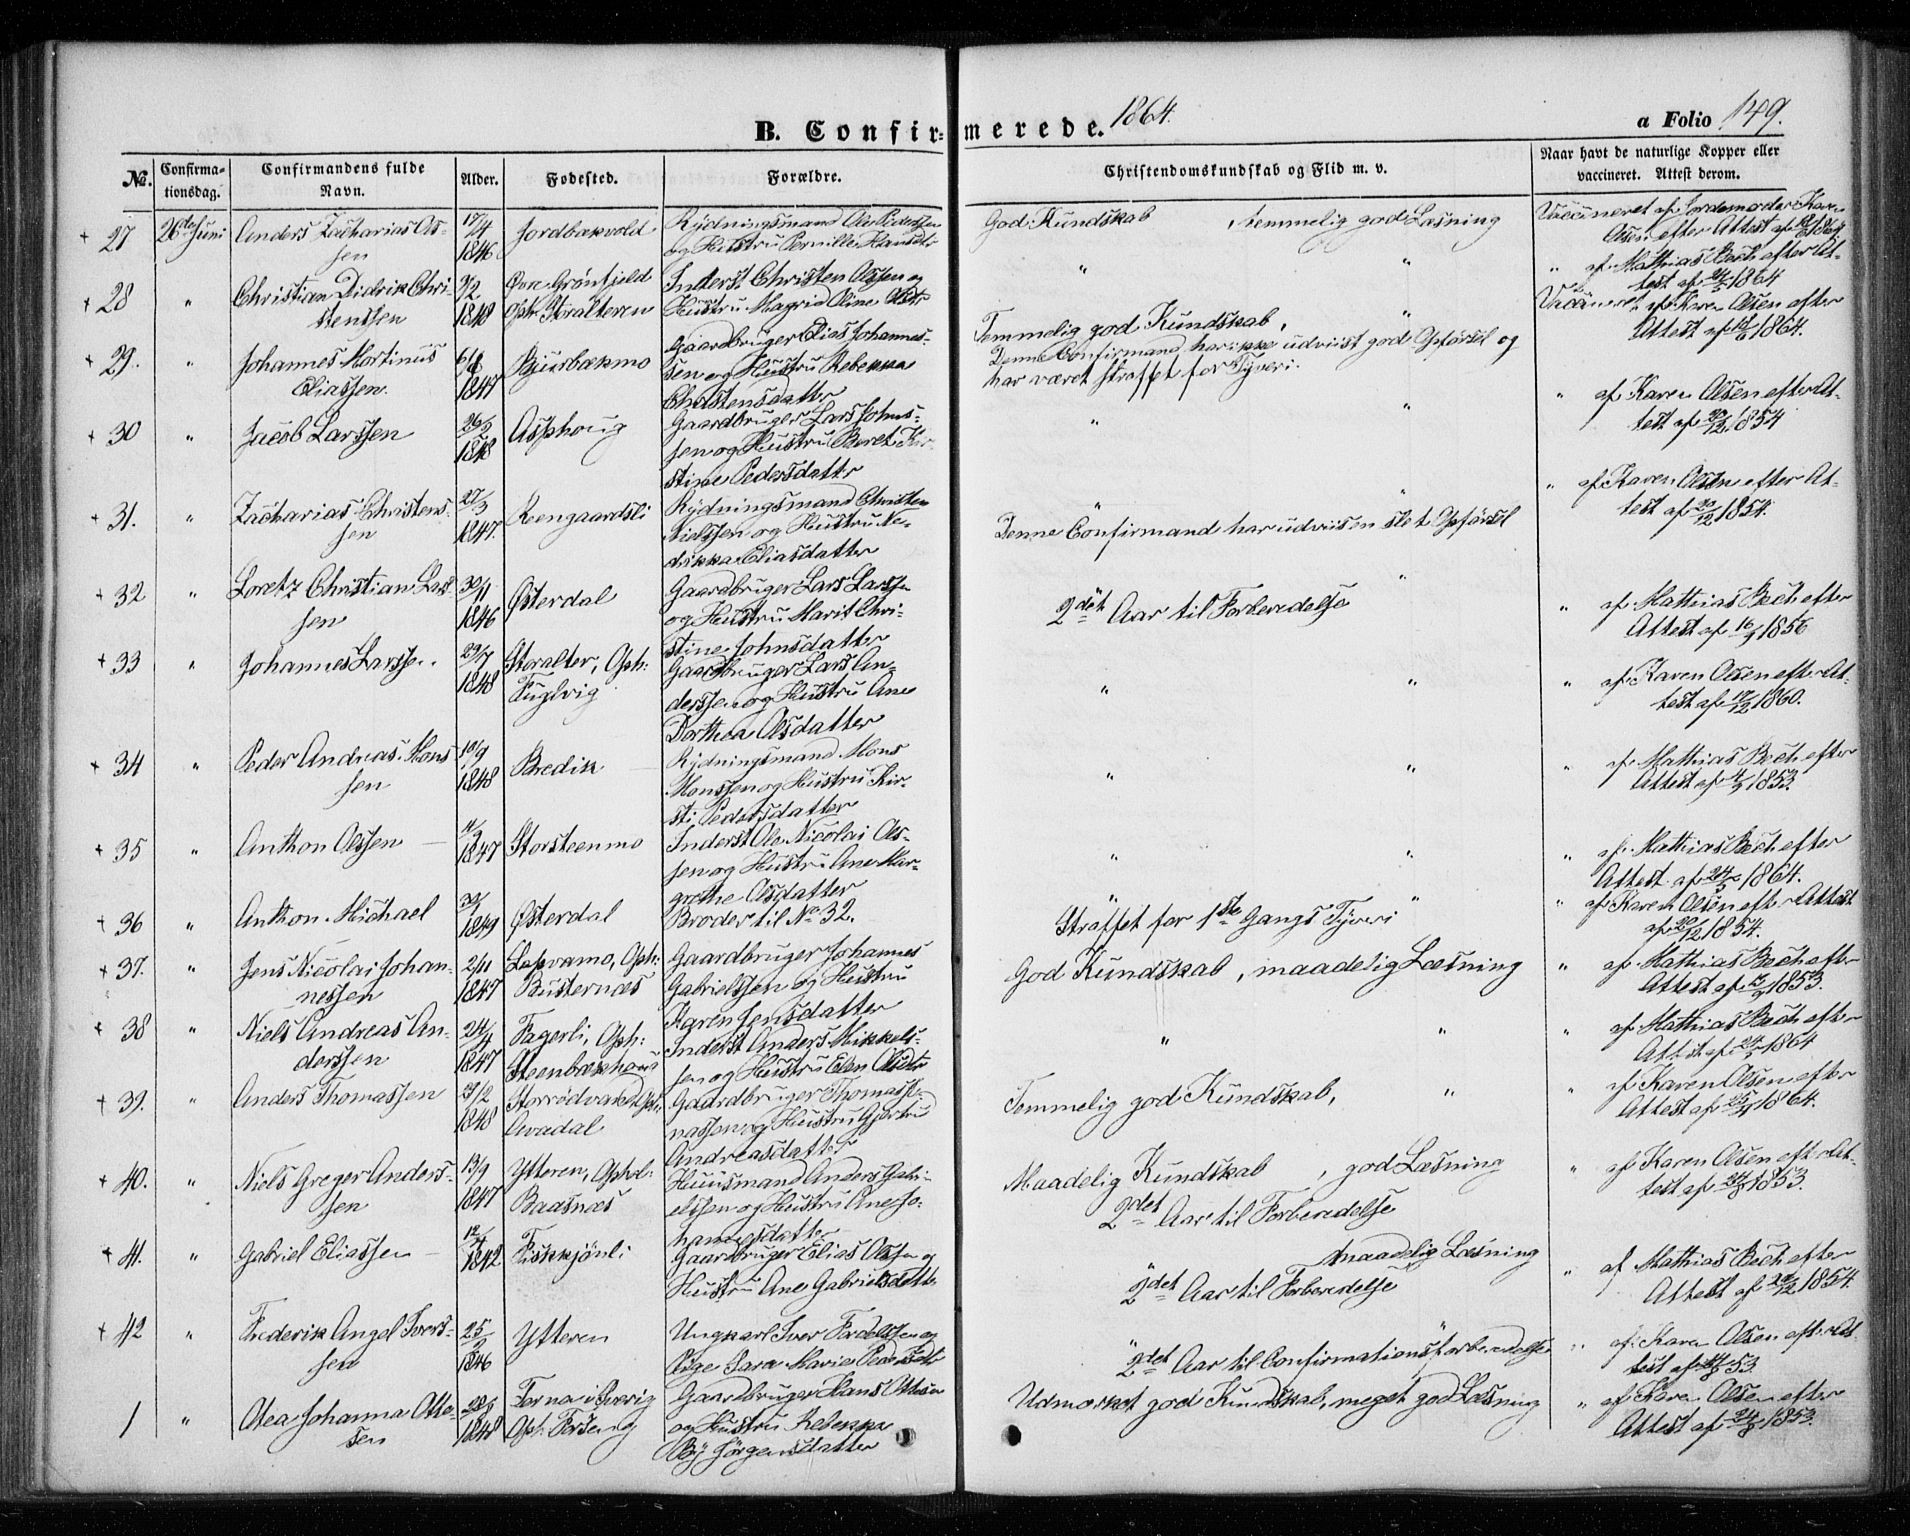 B. Confirmerede. 1864.
a Folio 149.
No. Confirmationsdag. Confirmandens fulde Navn. Alder. Fødested. Forældre. Christendomskundskab og Flid m. v. Naar havt de naturlige Kopper eller vaccineret. Attest derom.
+ 27 26de Juni Anders Zacharias Olssen 17/4 1846 Jordbækvold Rydningsmand Ole Pederssen og Hustru Pernille Hansdtr God Kundskab, temmelig god Læsning Vaccineret af Jordemoder Karen Olsen efter Attest af 1864
+ 28 " Christian Didrik Christenssen 3/2 1848 Øvre Grønfjeld Oph. Storalteren Inderst Christen Olssen og Hustru Magrid Oline Olsdtr " " " af Mathias Bech efter Attest af 24/5 1864
+ 29. " Johannes Martinus Eliassen. 6/8 1847 Bjursbækmo Gaardbruger Elias Johannessen og Hustru Rebekka Christensdatter Temmelig god Kundskab, " Denne Confirmand har ikke udviist god Opførsel og har været straffet for Tyveri. Vaccineret af Karen Olsen efter Attest af 1864.
+ 30 " Jacob Larssen 26/5 1848 Asphoug Gaardbruger Lars Johnssen og Hustru Beret Kirstine Pedersdatter " " " af Karen Olsen efter Attest af 20/12 1854
+ 31. " Zacharias Christenssen 27/3 1847. Rengaardsli Rydningsmand Christen Nielssen og Hustru Nedrikka Eliasdatter " " Denne Confirmand har udviisen slet Opførsel " af Karen Olsen efter Attest af 20/12 1854.
+ 32 " Loretz Christian Larssen 30/11 1846 Østerdal Gaardbruger Lars Larssen og Hustru Marit Christine Johnsdatter " 2det Aar til Forberedelse " af Mathias Bech efter Attest af 16/9 1856
+ 33 " Johannes Larssen. 29/7 1848 Storalter, Oph: Fuglvig Gaardbruger Lars Anderssen og Hustru Ane Dorthea Olsdatter " " " af Karen Olsen efter Attest af 17/12 1860.
+ 34 " Peder Andreas Monssen 10/9 1848 Bredik Rydningsmand Mons Monssen og Hustru Kirsti Pedersdatter " " " af Mathias Bech efter Attest af 4/9 1853.
+ 35 " Anthon Olssen 1847 Storsteenmo Inderst Ole Nicolai Olssen og Hustru Ane Margrethe Olsdatter " " " af Mathias Bech efter Attest af 24/5 1864.
+ 36 " Anthon Michael 1849 Østerdal Broder til No 32. " " Straffet for 1ste Gangs Tyveri " af Karen Olsen efter Attest af 20/12 1854.
+ 37. " Jens Nicolai Johannessen 2/11 1847 Oph: Busternæs Gaardbruger Johannes Gabrielssen og Hustru Karen Jensdatter God Kundskab, maadelig Læsning " af Mathias Bech efter Attest af 1853.
+ 38 " Niels Andreas Anderssen 24/4 1847 Fagerli, Oph: Steenbækhoug Inderst Anders Mikkelssen og Hustru Elen Olsdtr " " " af Mathias Bech efter Attest af 24/5 1864
+ 39. " Anders Thomassen 23/2 1848 Avadal Gaardbruger Hustru Gjertrud Andreasdatter Temmelig god Kundskab, " " af Karen Olsen efter Attest af 1864.
+ 40. " Niels Greger Anderssen 13/9 1847 Ytteren, Ophol: Baasnæs Huusmand Anders Gabrielssen og Hustru Ane Johannesdatter Maadelig Kundskab, god Læsning 2det Aar til Forberedelse " af Karen Olsen efter Attest af 1853.
+ 41. " Gabriel Eliassen 12/4 1842 Fiskkjønli Gaardbruger Elias Olssen og Hustru Ane Gabrielsdatter " maadelig Læsning 2det Aar til Forberedelse " af Mathias Bech efter Attest af 20/12 1854.
+ 42 " Frederik Angel Iverssen 25/2 1846 Ytteren Ungkarl Iver og Pige Sara Marie Pedersdtr " " 2det Aar til Confirmationsforberedelse " af Karen Olsen efter Attest af 53
1 " Olea Johanna Ottesen 28/5 1848 Terna i Sverig Oph. Forseng Gaardbruger Hans Ottesen og Hustru Rebekka Jørgensdatter Udmærket god Kundskab, meget god Læsning " af Karen Olsen efter Attest af 24/8 1853.